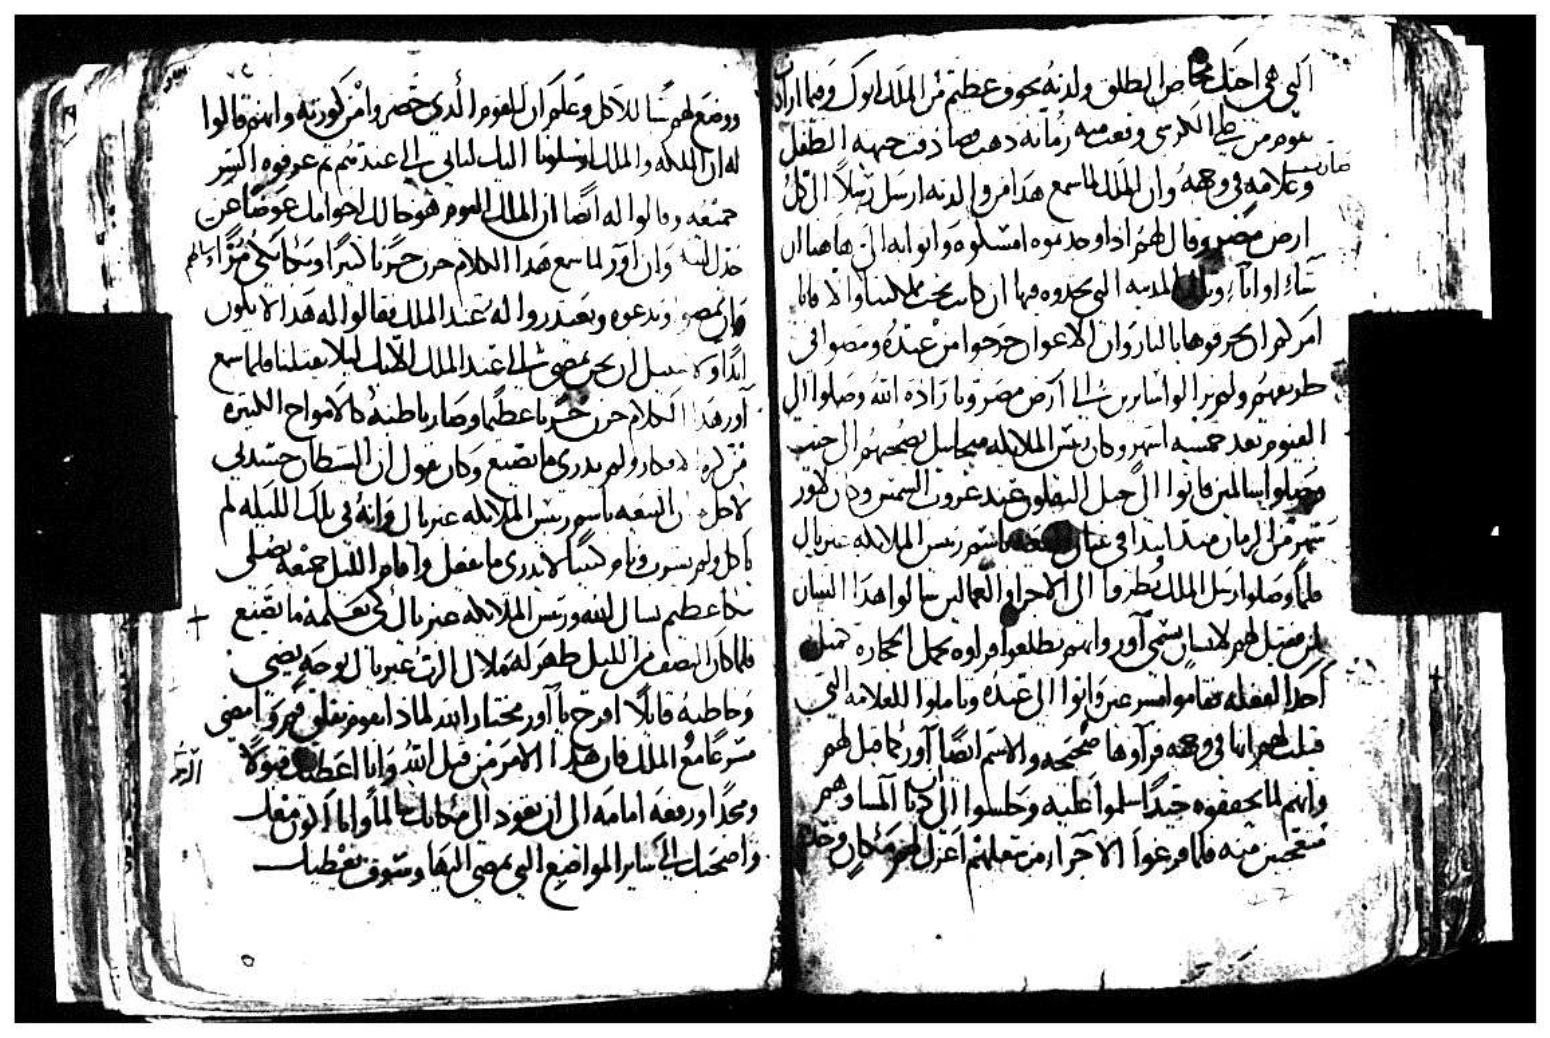 التي هي اختك مخاض الطلق ولدته بخوف عظيم من الملك ابوك وفيما ارادت
تقوم من على الكرسي وقعت منه رمانة ذهب فصادفت جبهة الطفل
صار
وعلامه في وجهه وان الملك لما سمع هذا من والدته ارسل رسلاً الى كل
ارض مصر وقال لهم اذا وجدتموه امسكوه واتوا به الى هاهنا ان
شاء او ابا المدينه التي تجدوه فيها ان كانت تحت مملكتنا والا فانا
امركم ان تحرقوها بالنار وان الاعوان خرجوا من عنده ومضوا في
طريقهم ولم يزالوا سايرين الى ارض مصر وبارادة الله وصلوا الى
الفيوم بعد خمسة اشهر وكان رئيس الملايكه ميخاييل يصحبهم الى حيث
وصلوا سالمين فاتوا الى جبل النقلون عند غروب الشمس وكان لاور
شهر من الزمان منذ ابتدا في باسم رئيس الملايكه غبريال
فلما وصلوا رسل الملك نظروا الى الاجرا والعمالين سالوا هذا البنيان
لمن فقيل لهم لانسان يسمى آور وانهم تطلعوا فراوه يحمل الحجاره كمثل
احد الفعله فقاموا مسرعين واتوا الى عنده وتاملوا للعلامه التي
قيلت لهم انها في وجهه فرآوها صحيحه والاسم ايضًا آور كما قيل لهم
وانهم لما تحققوه جيدًا سلموا عليه وجلسوا الى المسا وهم
متعجبين منه فلما فرغوا الآجرا من عملهم اعزل لهم مكان وحده
ووضع لهم شيًا للاكل وعلم ان للقوم الذي حضروا من كورته وانهم قالوا
له ان الملكه والملك ارسلونا اليك لتاتي الى عندهم ثم عرفوه السر
جميعه وقالوا له ايضًا ان الملك اليوم هو خالك اخو امك عوضًا عن
جدك وان آور لما سمع هذا الكلام حزن حزنًا كثيرًا وبكا بكى مرًا
بان يمضوا ويدعوه ويعتذروا له عند الملك فقالوا له هذا لا يكون
ابدًا ولا سبيل ان نحن نمضي الى عند الملك الا بك ليلا يقتلنا فلما سمع
آور هذا الكلام حزن حزنًا عظيمًا وصار باطنه كالامواج الكثيره
من كثرة الافكار ولم يدري ما يصنع وكان يقول ان الشيطان حسدني
لاجل ان البيعه باسم رئيس الملايكه غبريال وانه في تلك الليله لم
ياكل ولم يشرب وقام كئيبًا لا يدري ما يفعل واقام الليل جميعه يصلي
ببكا عظيم يسال الله ورئيس الملايكه غبريال لكي يعلمه ما يصنع
فلما كان نصف الليل ظهر له ملاك الرب غبريال بوجهٍ يضي
وخاطبه قايلًا افرح يا آور مختار الله لماذا انت متقلق قم وامضي
مسرعًا مع الملك فان هذا الامر من قبل الله وانا اعطيك قبولًا
ومجدًا ورفعه امامه الى ان تعود الى مكانك سالمًا وانا اكون معك
واصحبك الى ساير المواضع التي تمضي اليها وسوف يعطيك